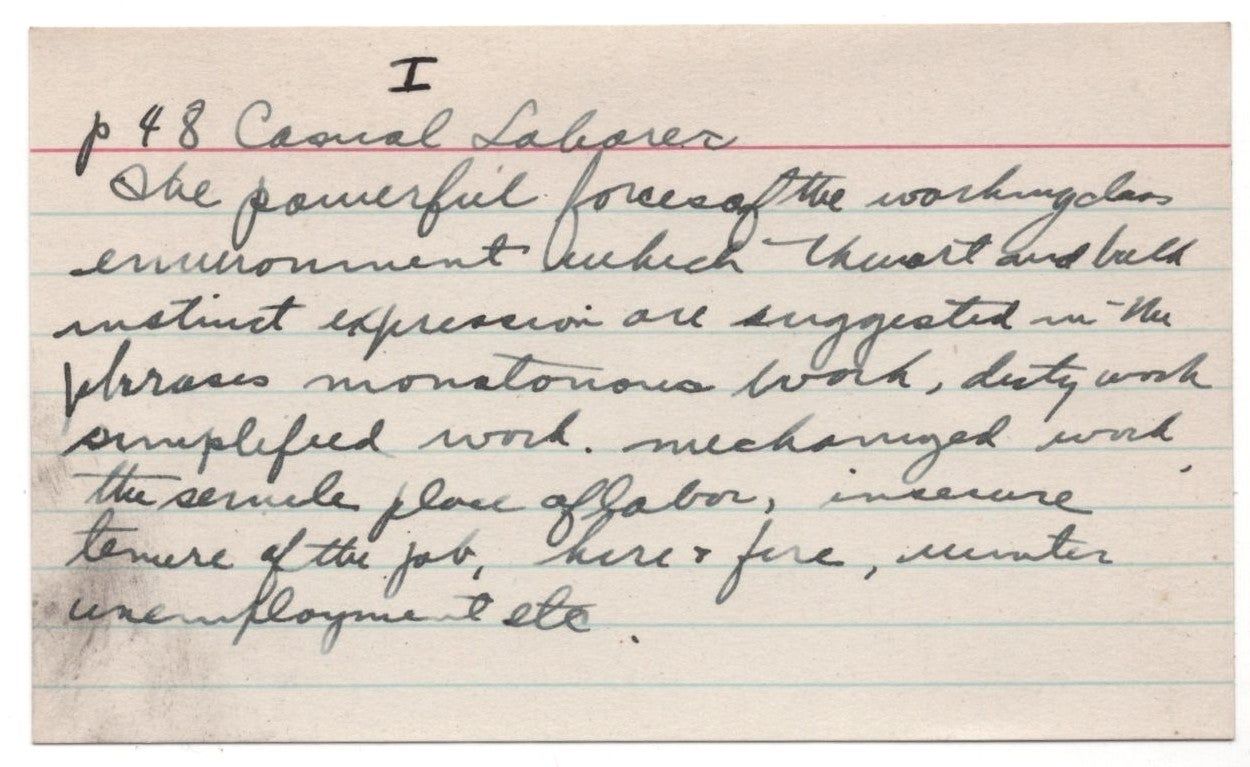 I
p 48 Casual Laborer
The powerful forces of the working class
environment which thwart and balk
instinct expression are suggested in the
phrases monotonous work, dirty work
simplified work. mechanized work,
the servile place of labor, insecure
tenure of the job, hire & fire, winter
unemployment etc.